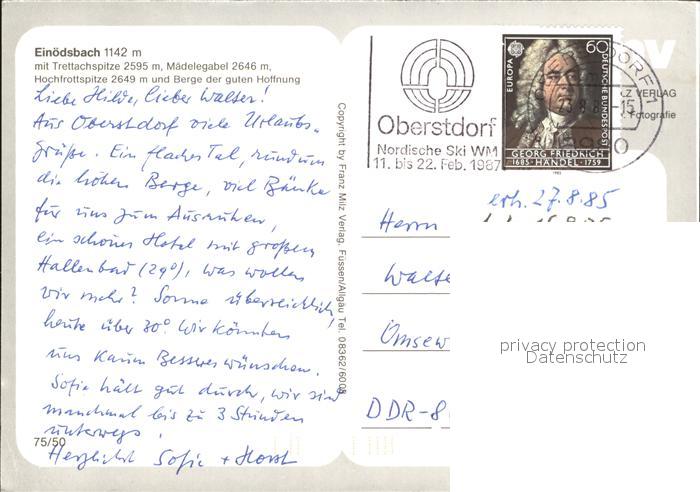 Einödsbach 1142 m
mit Trettachspitze 2595 m, Mädelegabel 2646 m,
Hochfrottspitze 2649 m und Berge der guten Hoffnung
Liebe Hilde, lieber Walter!
Aus Oberstdorf viele Urlaubs-
grüße. Ein flaches Tal, rundum
die hohen Berge, viel Bänke
für uns zum Ausruhen,
ein schönes Hotel mit großem
Hallenbad (29°), was wollen
wir mehr? Sonne überreichlich,
heute über 30°. Wir könnten
uns kaum Besseres wünschen.
Sofie hält gut durch, wir sind
manchmal bis zu 3 Stunden
unterwegs.
Herzlichst Sofie + Horst
75/50
Copyright by Franz Milz Verlag, Füssen/Allgäu Tel. 08362/6008
Oberstdorf
Nordische Ski WM
11. bis 22. Feb. 1987
EUROPA
60
DEUTSCHE BUNDESPOST
GEORG FRIEDRICH
1685 HÄNDEL 1759
1985
VERLAG
Fotografie
erh. 27.8.85
Herrn
Walte
Omsew
DDR-8
privacy protection
Datenschutz